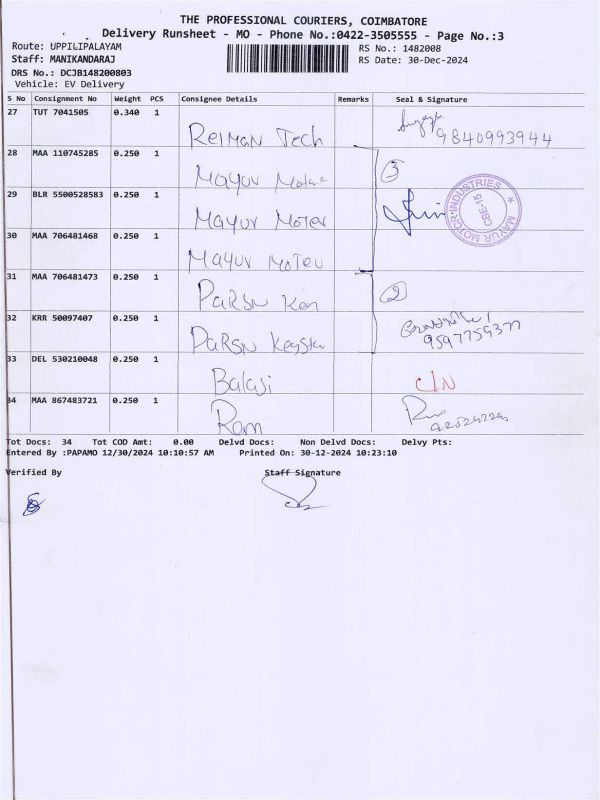 THE PROFESSIONAL COURIERS, COIMBATORE
Delivery Runsheet - MO - Phone No.:0422-3505555 - Page No.:3
Route: UPPILIPALAYAM
RS No.: 1482008
Staff: MANIKANDARAJ
RS Date: 30-Dec-2024
DRS No.: DCJB148200803
Vehicle: EV Delivery
S No Consignment No Weight PCS Consignee Details Remarks Seal & Signature
27 TUT 7041505 0.340 1 Reiman Tech 9840993944
28 MAA 110745285 0.250 1 Mayur 3
29 BLR 5500528583 0.250 1 Mayur Moter
MAYUR MOTOR INDUSTRIES ★ CBE-15
30 MAA 706481468 0.250 1 Mayur Moteu
31 MAA 706481473 0.250 1 Parsn Ken 2
32 KRR 50097407 0.250 1 Parsn 9597759377
33 DEL 530210048 0.250 1 Balaji C/N
34 MAA 867483721 0.250 1 Ram
Tot Docs: 34 Tot COD Amt: 0.00 Delvd Docs: Non Delvd Docs: Delvy Pts:
Entered By :PAPAMO 12/30/2024 10:10:57 AM Printed On: 30-12-2024 10:23:10
Verified By Staff Signature